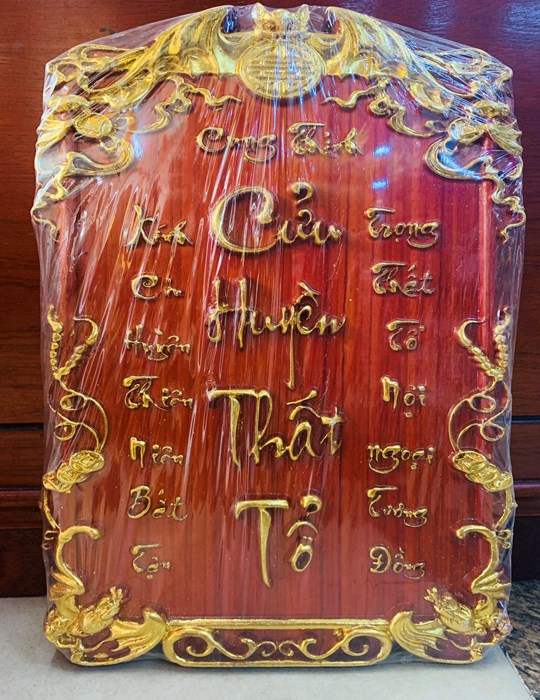 Cung Thỉnh
Cửu
Huyền
Thất
Tổ
Kính
Cửu
Huyền
Thiên
Niên
Bất
Tận
Trọng
Thất
Tổ
Nội
ngoại
Tương
Đồng